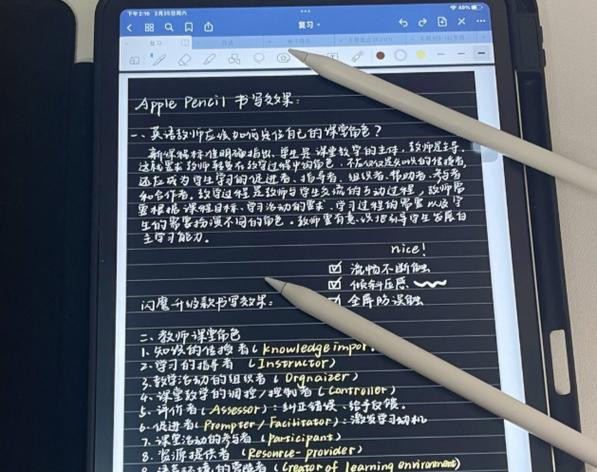 下午2:16 3月25日周六
40%
复习
复习
Apple Pencil 书写效果:
一、英语教师应该如何定位自己的课堂角色?
新课程标准明确指出、学生是课堂教学的主体,教师是主导。
这就要求教师转变在教学过程中的角色,不应仅仅是知识的传授者,
还应成为学生学习的促进者、指导者、组织者、帮助者、参与者
和合作者。教学过程是教师与学生交流的互动过程,教师需
要根据课程目标、学习活动的要求、学习过程的需要以及学
生的需要扮演不同的角色。教师要有意识地引导学生发展自
主学习能力。
nice!
☑ 流畅不断触
☑ 倾斜压感
☑ 全屏防误触
闪魔升级款书写效果:
二、教师课堂角色
1、知识的传授者(knowledge impor
2、学习的指导者(Instructor)
3、教学活动的组织者(Orgnaizer)
4、课堂教学的调控/控制者(Controller)
5、评价者(Assessor):纠正错误、给予反馈。
6、促进者(Prompter/Facilitator):激发学习动机
7、课堂活动的参与者(participant)
8、资源提供者(Resource-provider)
9、语言环境的营造者(Creator of learning environment)